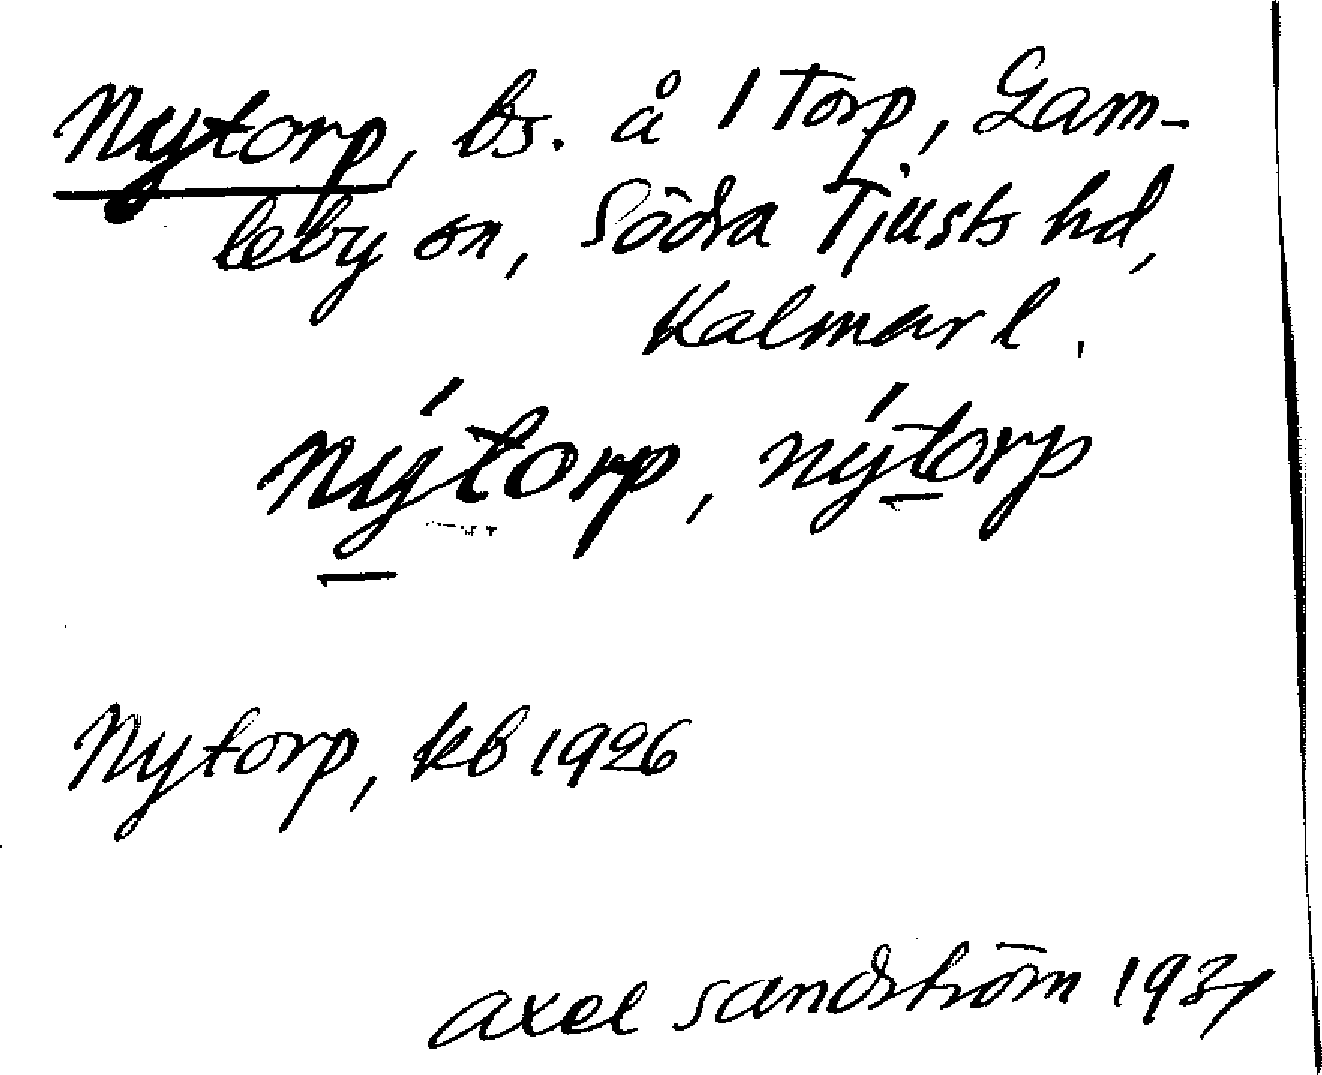 Nytorp, bs. å 1 Torp, Gam-
leby sn, Södra Tjusts hd,
Kalmar l.
nýtorp, nýtorp
Nytorp, kb 1926
axel sandström 1937